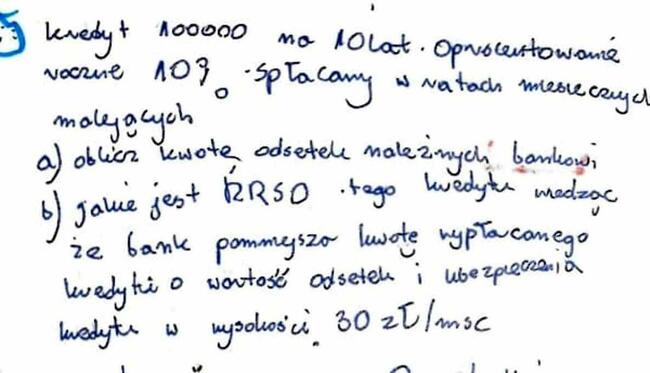 kredyt 100000 na 10 lat. Oprocentowanie
roczne 10%. spłacany w ratach miesięcznych
malejących
a) oblicz kwotę odsetek należnych bankowi
b) jakie jest RRSO tego kredytu wiedząc
że bank pomniejsza kwotę wypłacanego
kredytu o wartość odsetek i ubezpieczenia
kredytu w wysokości 30 zł/msc